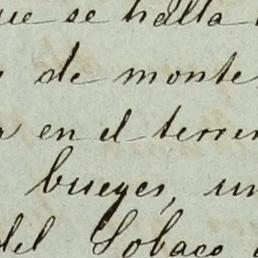 que se halla
de monte
en el terren
bueyes, un
del Sobaco